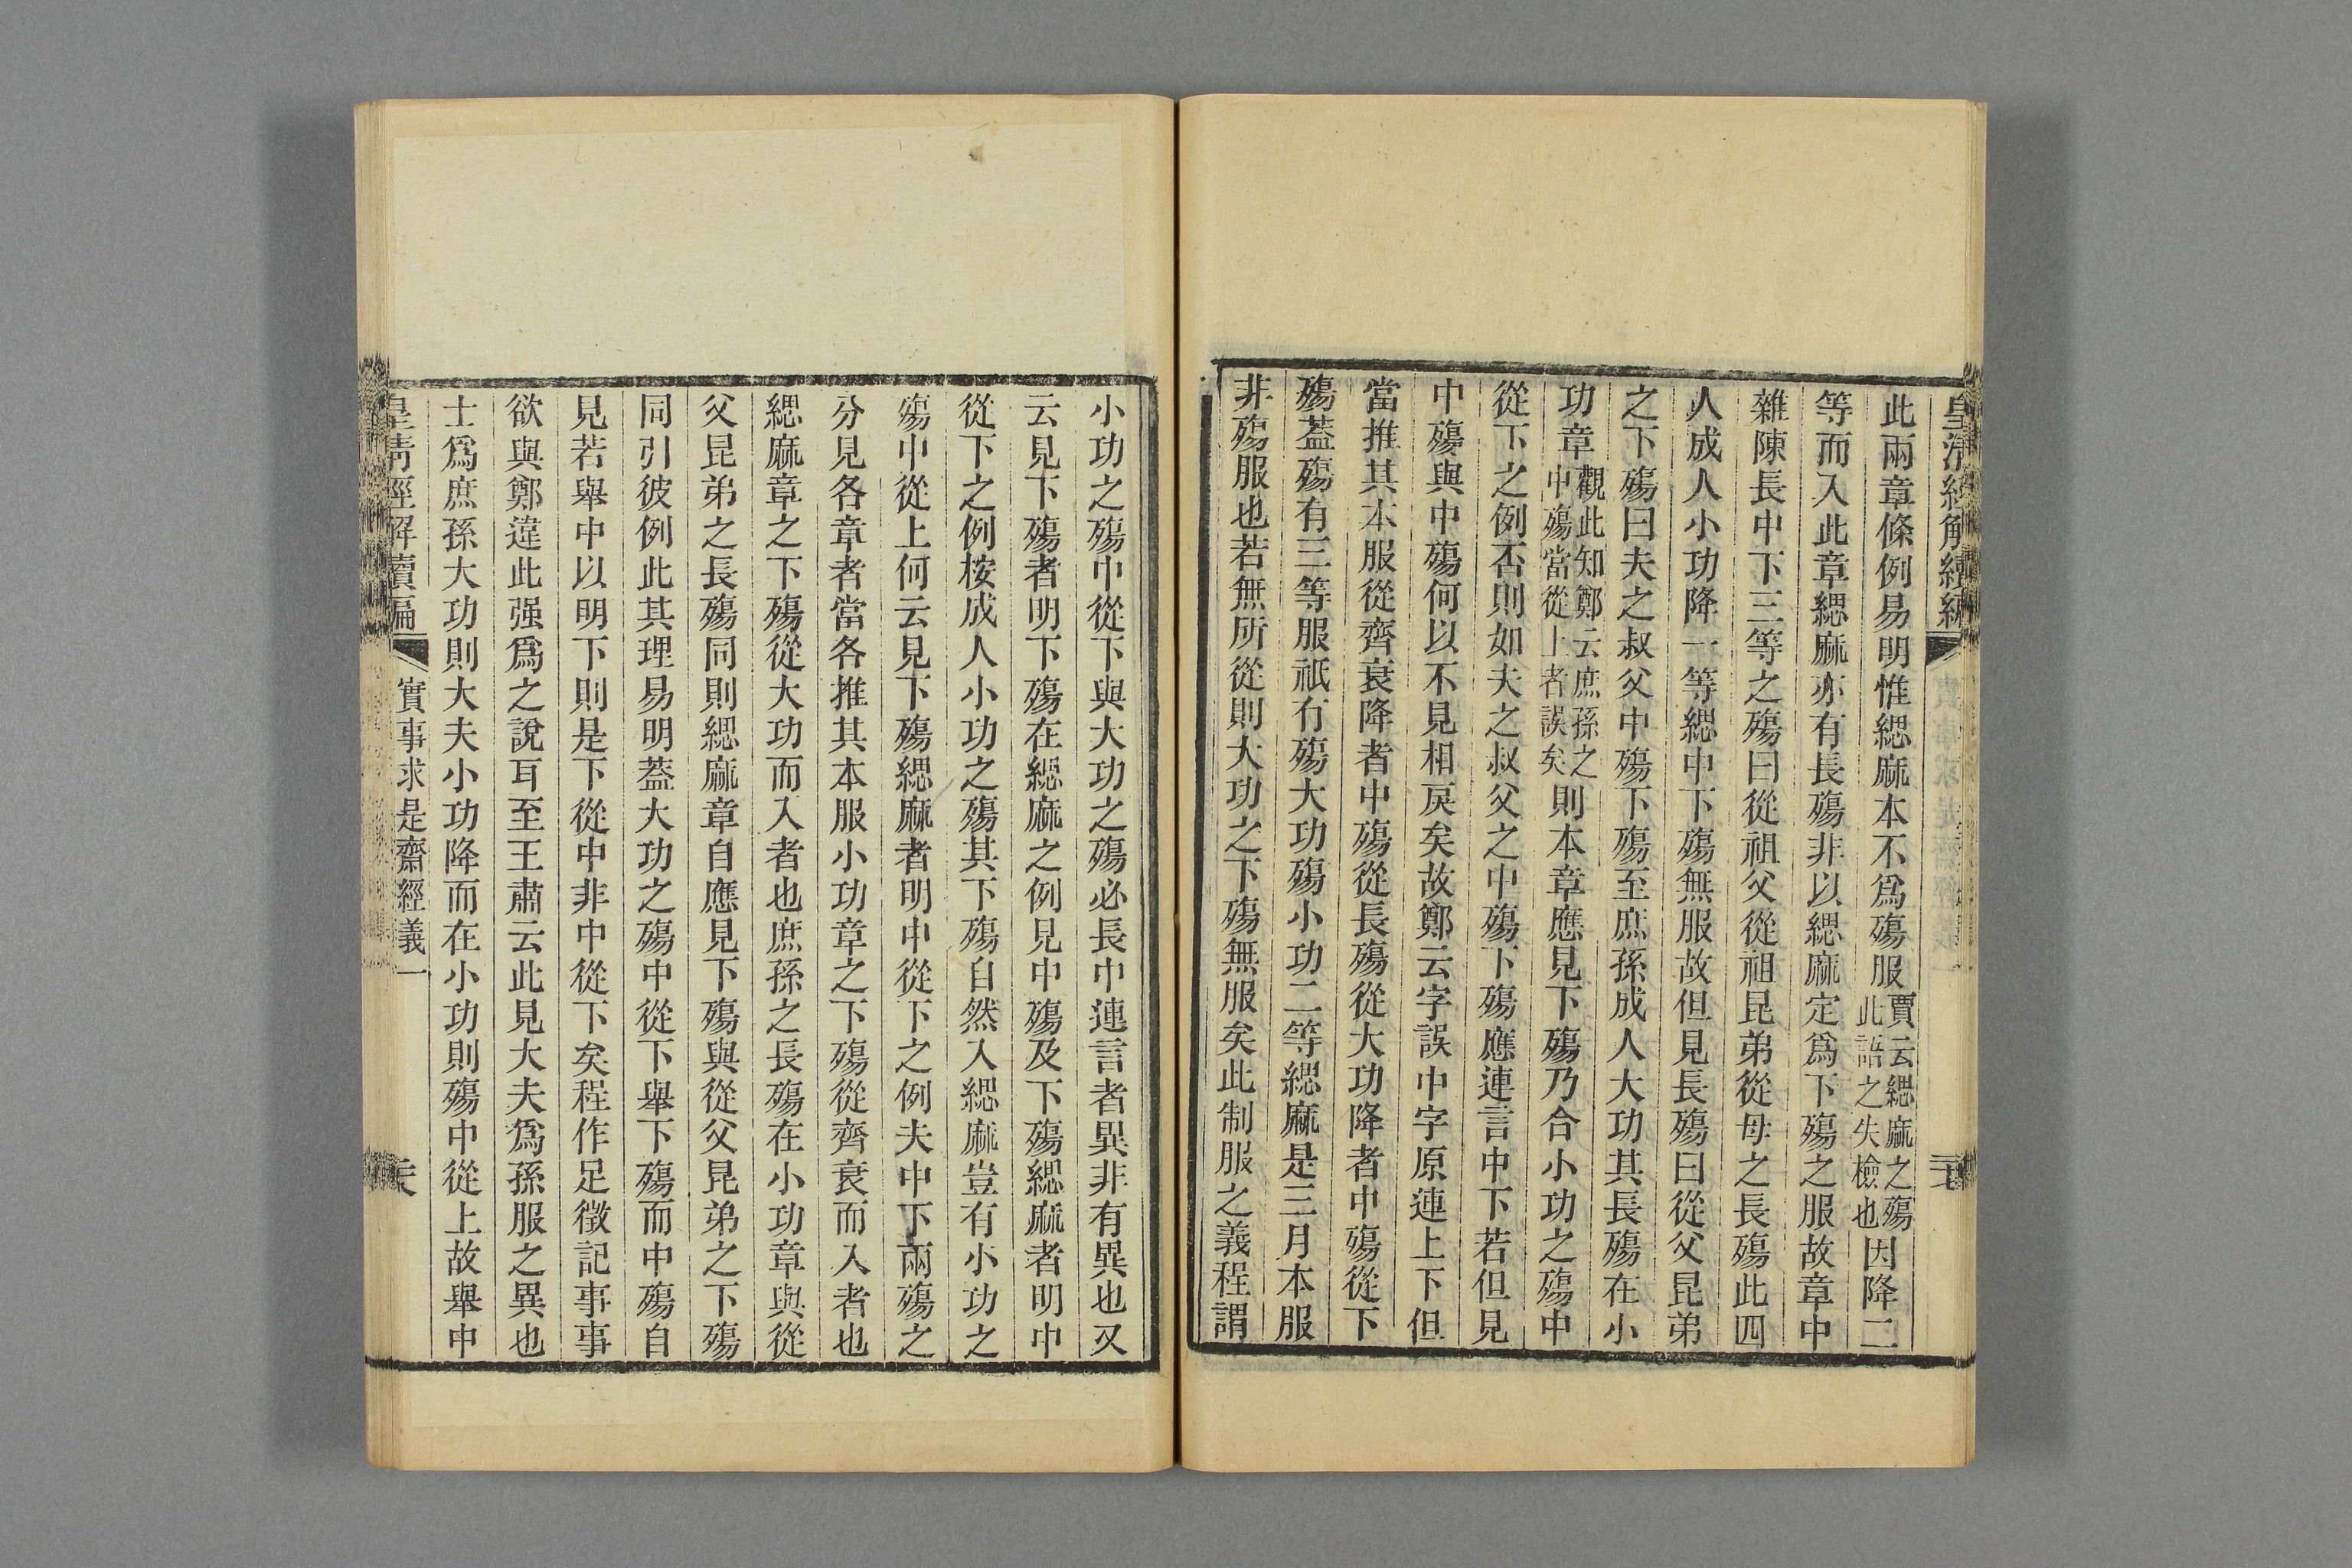 皇清經解續編
此兩章條例易明惟緦麻本不爲殤服賈云緦麻之殤此語之失檢也因降二
等而入此章緦麻亦有長殤非以緦麻定爲下殤之服故章中
雜陳長中下三等之殤曰從祖父從祖昆弟從母之長殤此四
人成人小功降一等緦中下殤無服故但見長殤曰從父昆弟
之下殤曰夫之叔父中殤下殤至庶孫成人大功其長殤在小
功章觀此知鄭云庶孫之中殤當從上者誤矣則本章應見下殤乃合小功之殤中
從下之例否則如夫之叔父之中殤下殤應連言中下若但見
中殤與中殤何以不見相戾矣故鄭云字誤中字原連上下但
當推其本服從齊衰降者中殤從長殤從大功降者中殤從下
殤蓋殤有三等服祇有殤大功殤小功二等緦麻是三月本服
非殤服也若無所從則大功之下殤無服矣此制服之義程謂
小功之殤中從下與大功之殤必長中連言者異非有異也又
云見下殤者明下殤在緦麻之例見中殤及下殤緦麻者明中
從下之例桉成人小功之殤其下殤自然入緦麻豈有小功之
殤中從上何云見下殤緦麻者明中從下之例夫中下兩殤之
分見各章者當各推其本服小功章之下殤從齊衰而入者也
緦麻章之下殤從大功而入者也庶孫之長殤在小功章與從
父昆弟之長殤同則緦麻章自應見下殤與從父昆弟之下殤
同引彼例此其理易明蓋大功之殤中從下舉下殤而中殤自
見若舉中以明下則是下從中非中從下矣程作足徵記事事
欲與鄭違此强爲之說耳至王肅云此見大夫爲孫服之異也
士爲庶孫大功則大夫小功降而在小功則殤中從上故舉中
皇清經解續編 實事求是齋經義一